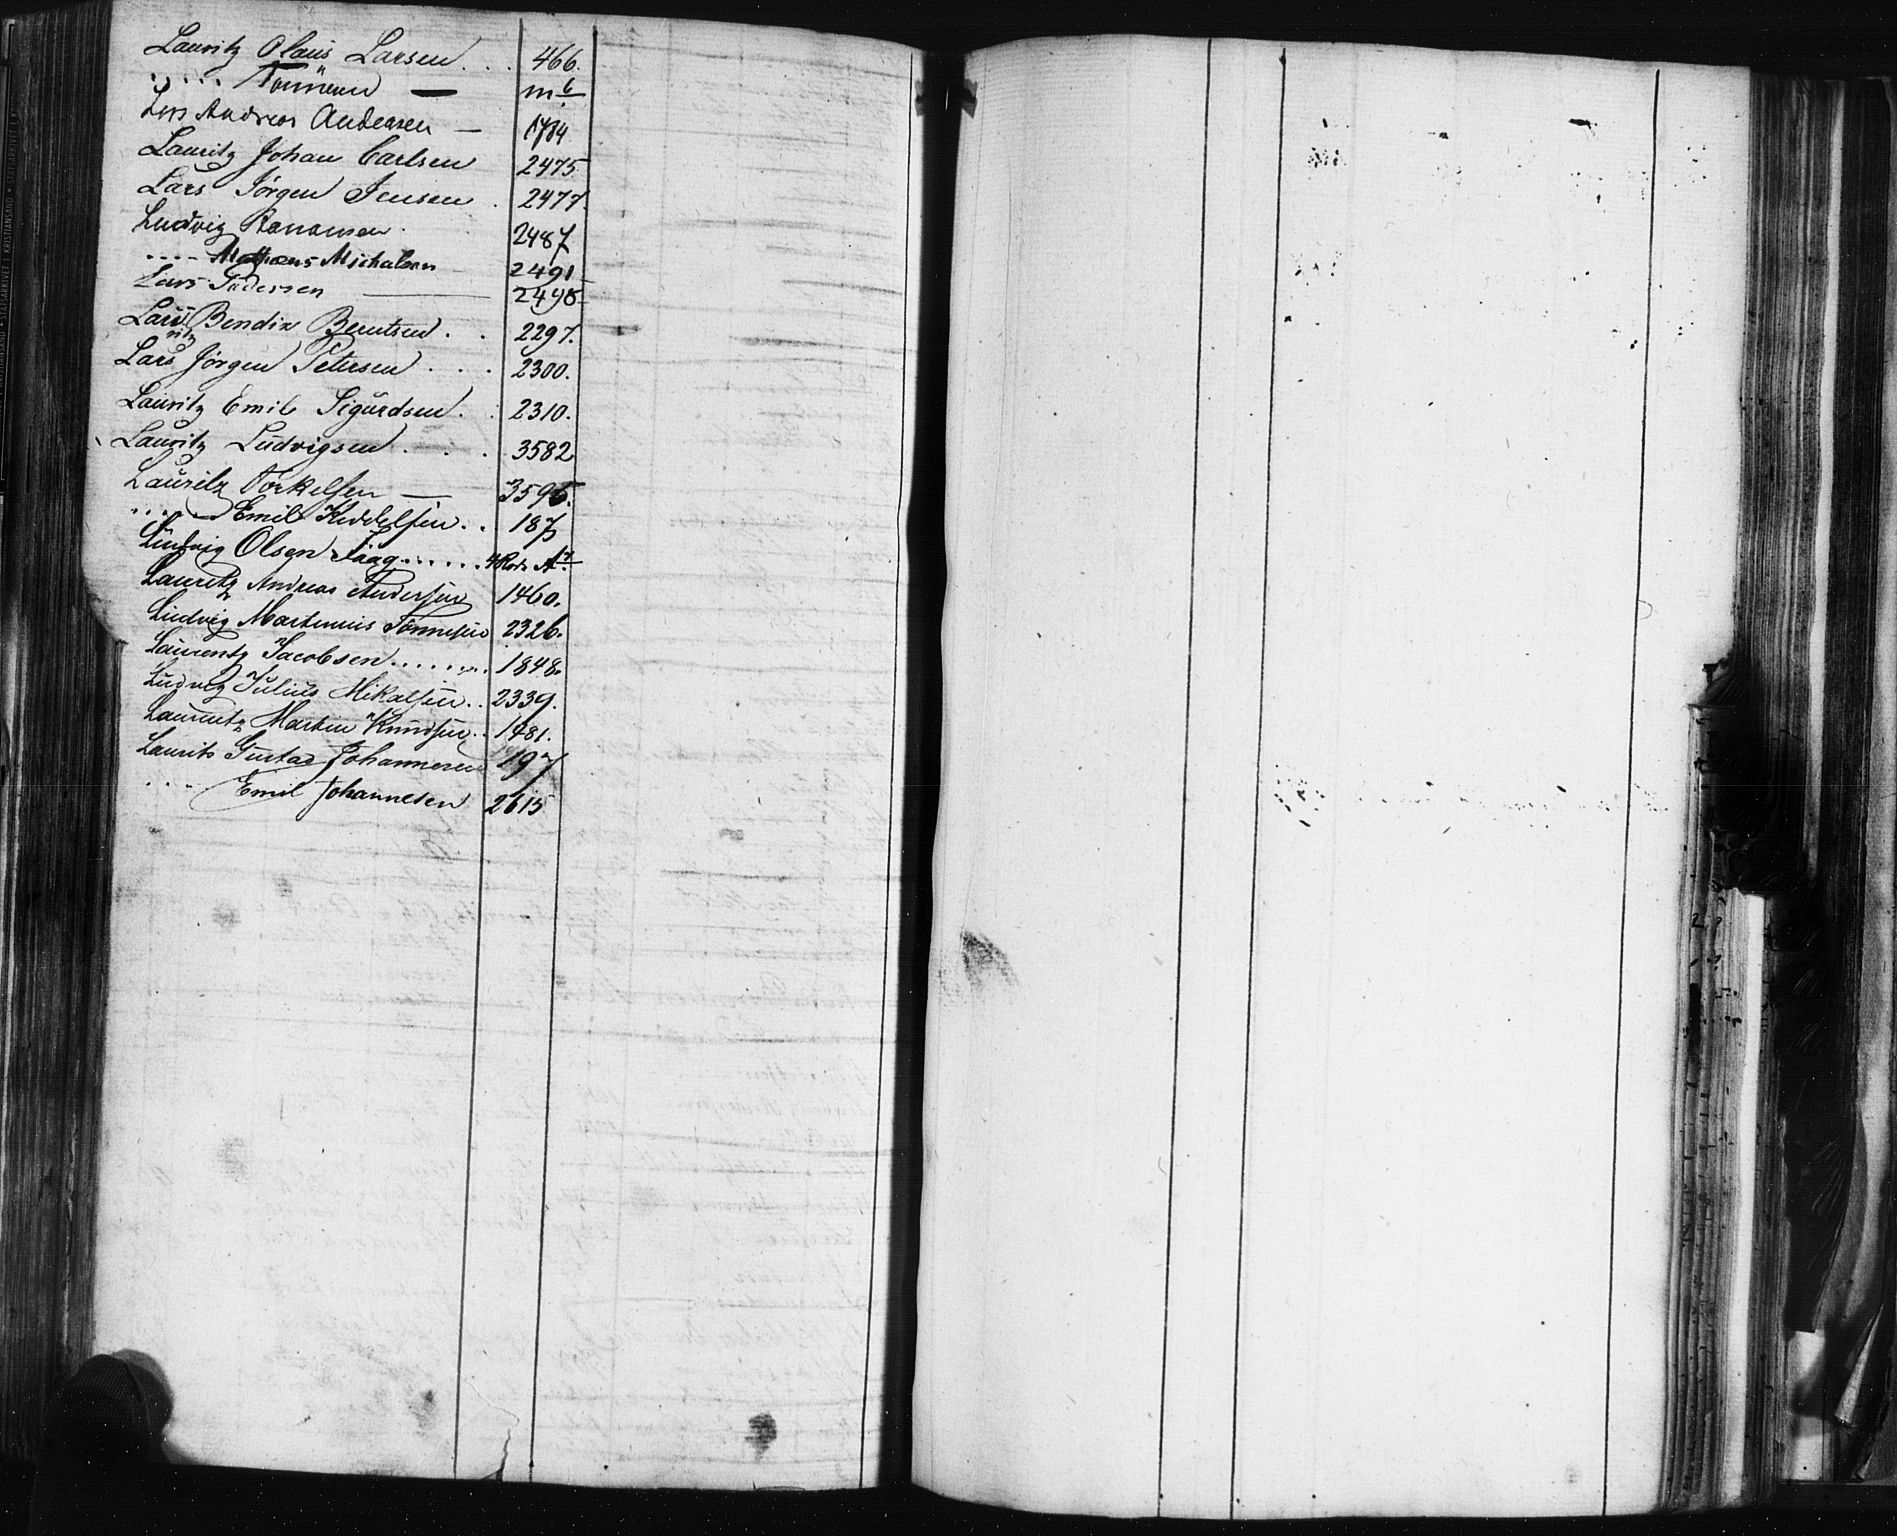 Lauritz Olaus Larsen . . . 466.
. . . . Tönnesen — m 6
Lars Andreas Andersen — 1784
Lauritz Johan Carlsen 2475
Lars Jørgen Jensen . 2477
Ludvig Aanonsen . 2487
. . . . Mathæus Michalsen 2491
Lars Pedersen — 2498
Lars Bendix Berntsen . . 2297.
ritz
Lars Jørgen Petersen . . . 2300.
Lauritz Emil Sigurdsen . . 2310.
Lauritz Ludvigsen . . . 3582
Lauritz Torkelsen — 3595.
. . . . Emil Keddelsen . . 187
Ludvig Olsen Faag . . . . . . 4 Rode
Lauritz Andreas Andersen 1460.
Ludvig Martinius Tönnesen 2326.
Laurentz Jacobsen . . . . . . . 1848.
Ludvig Julius Mikalsen . . 2339.
Lauritz Martin Knudsen . . 1481.
Laurits Gustav Johannesen 197
. . . . Emil Johannesen 2615